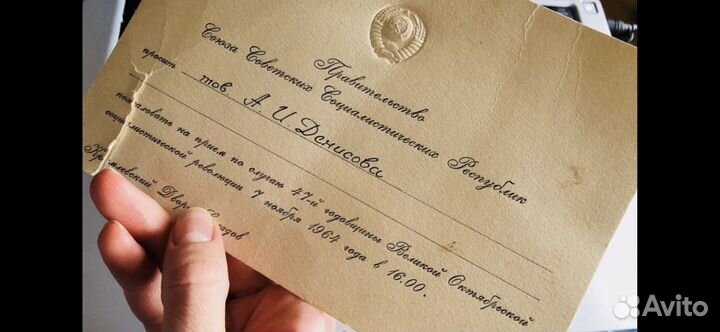 Правительство
Союза Советских Социалистических Республик
просит тов. А. И. Денисова
пожаловать на прием по случаю 47-й годовщины Великой Октябрьской
социалистической революции 7 ноября 1964 года в 16.00.
Кремлевский Дворец Съездов
Avito